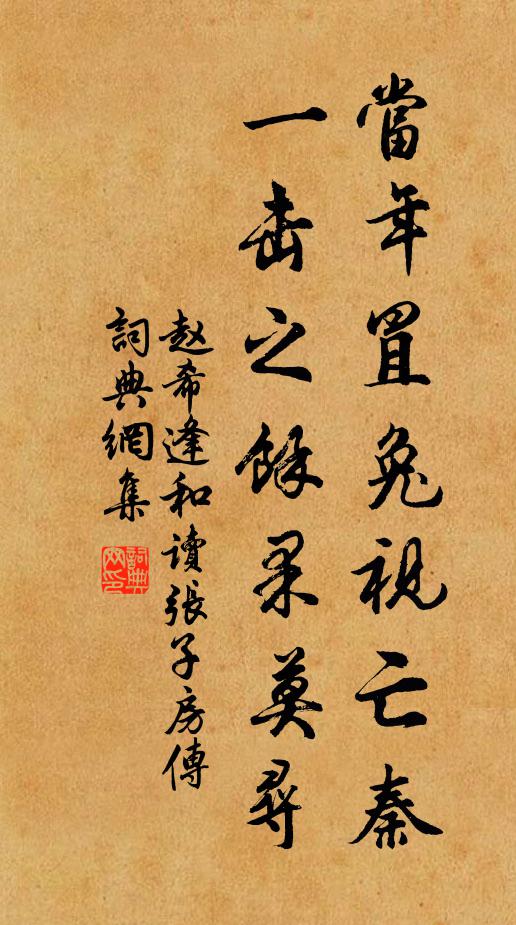 當年罝兔視亡秦
一击之餘果莫尋
赵希逢和讀張子房傳
詞典網集
詞典
网印